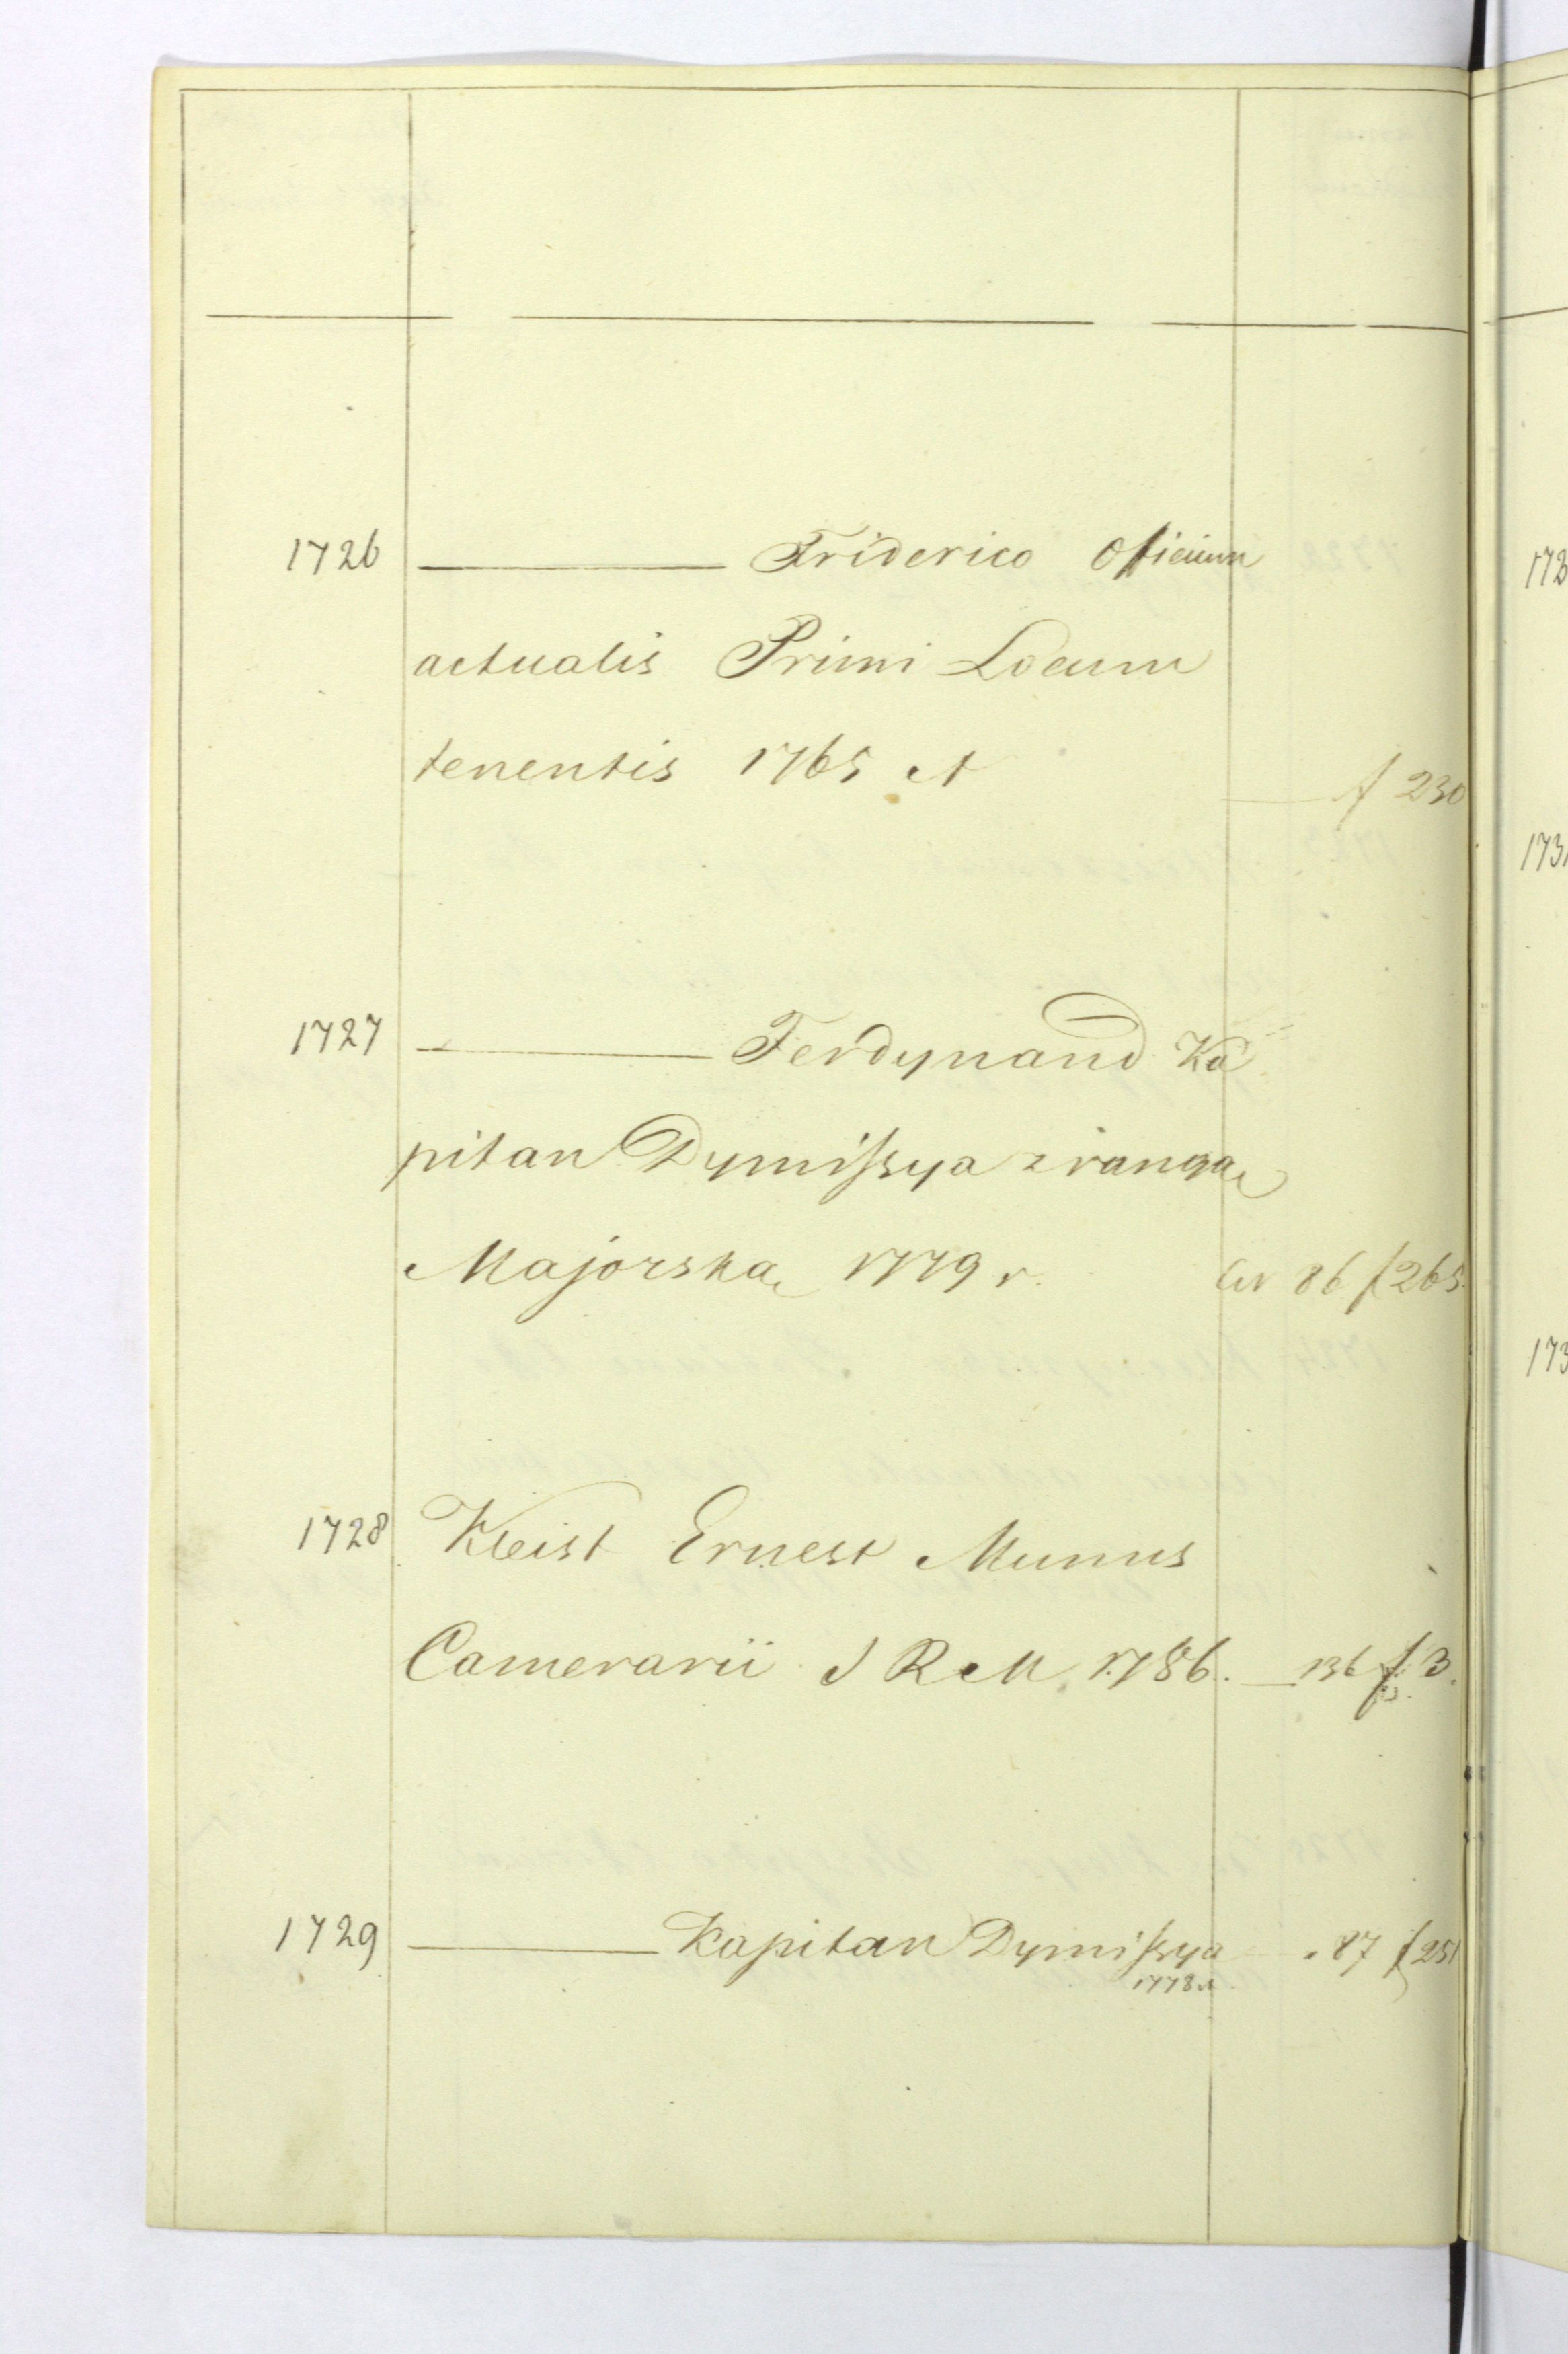 1726 ——— Friderico Officium
actualis Primi Locum
tenentis 1765 et
— f 230
1727 ——— Ferdynand Ka
pitan Dymissya z rangą
Majorską 1779 r.
86 f 265.
1728 Kleist Ernest Munus
Camerarii S R M. 1786. — 136 f 3.
1729 ——— Kapitan Dymissya 87 f 251
1778 r.